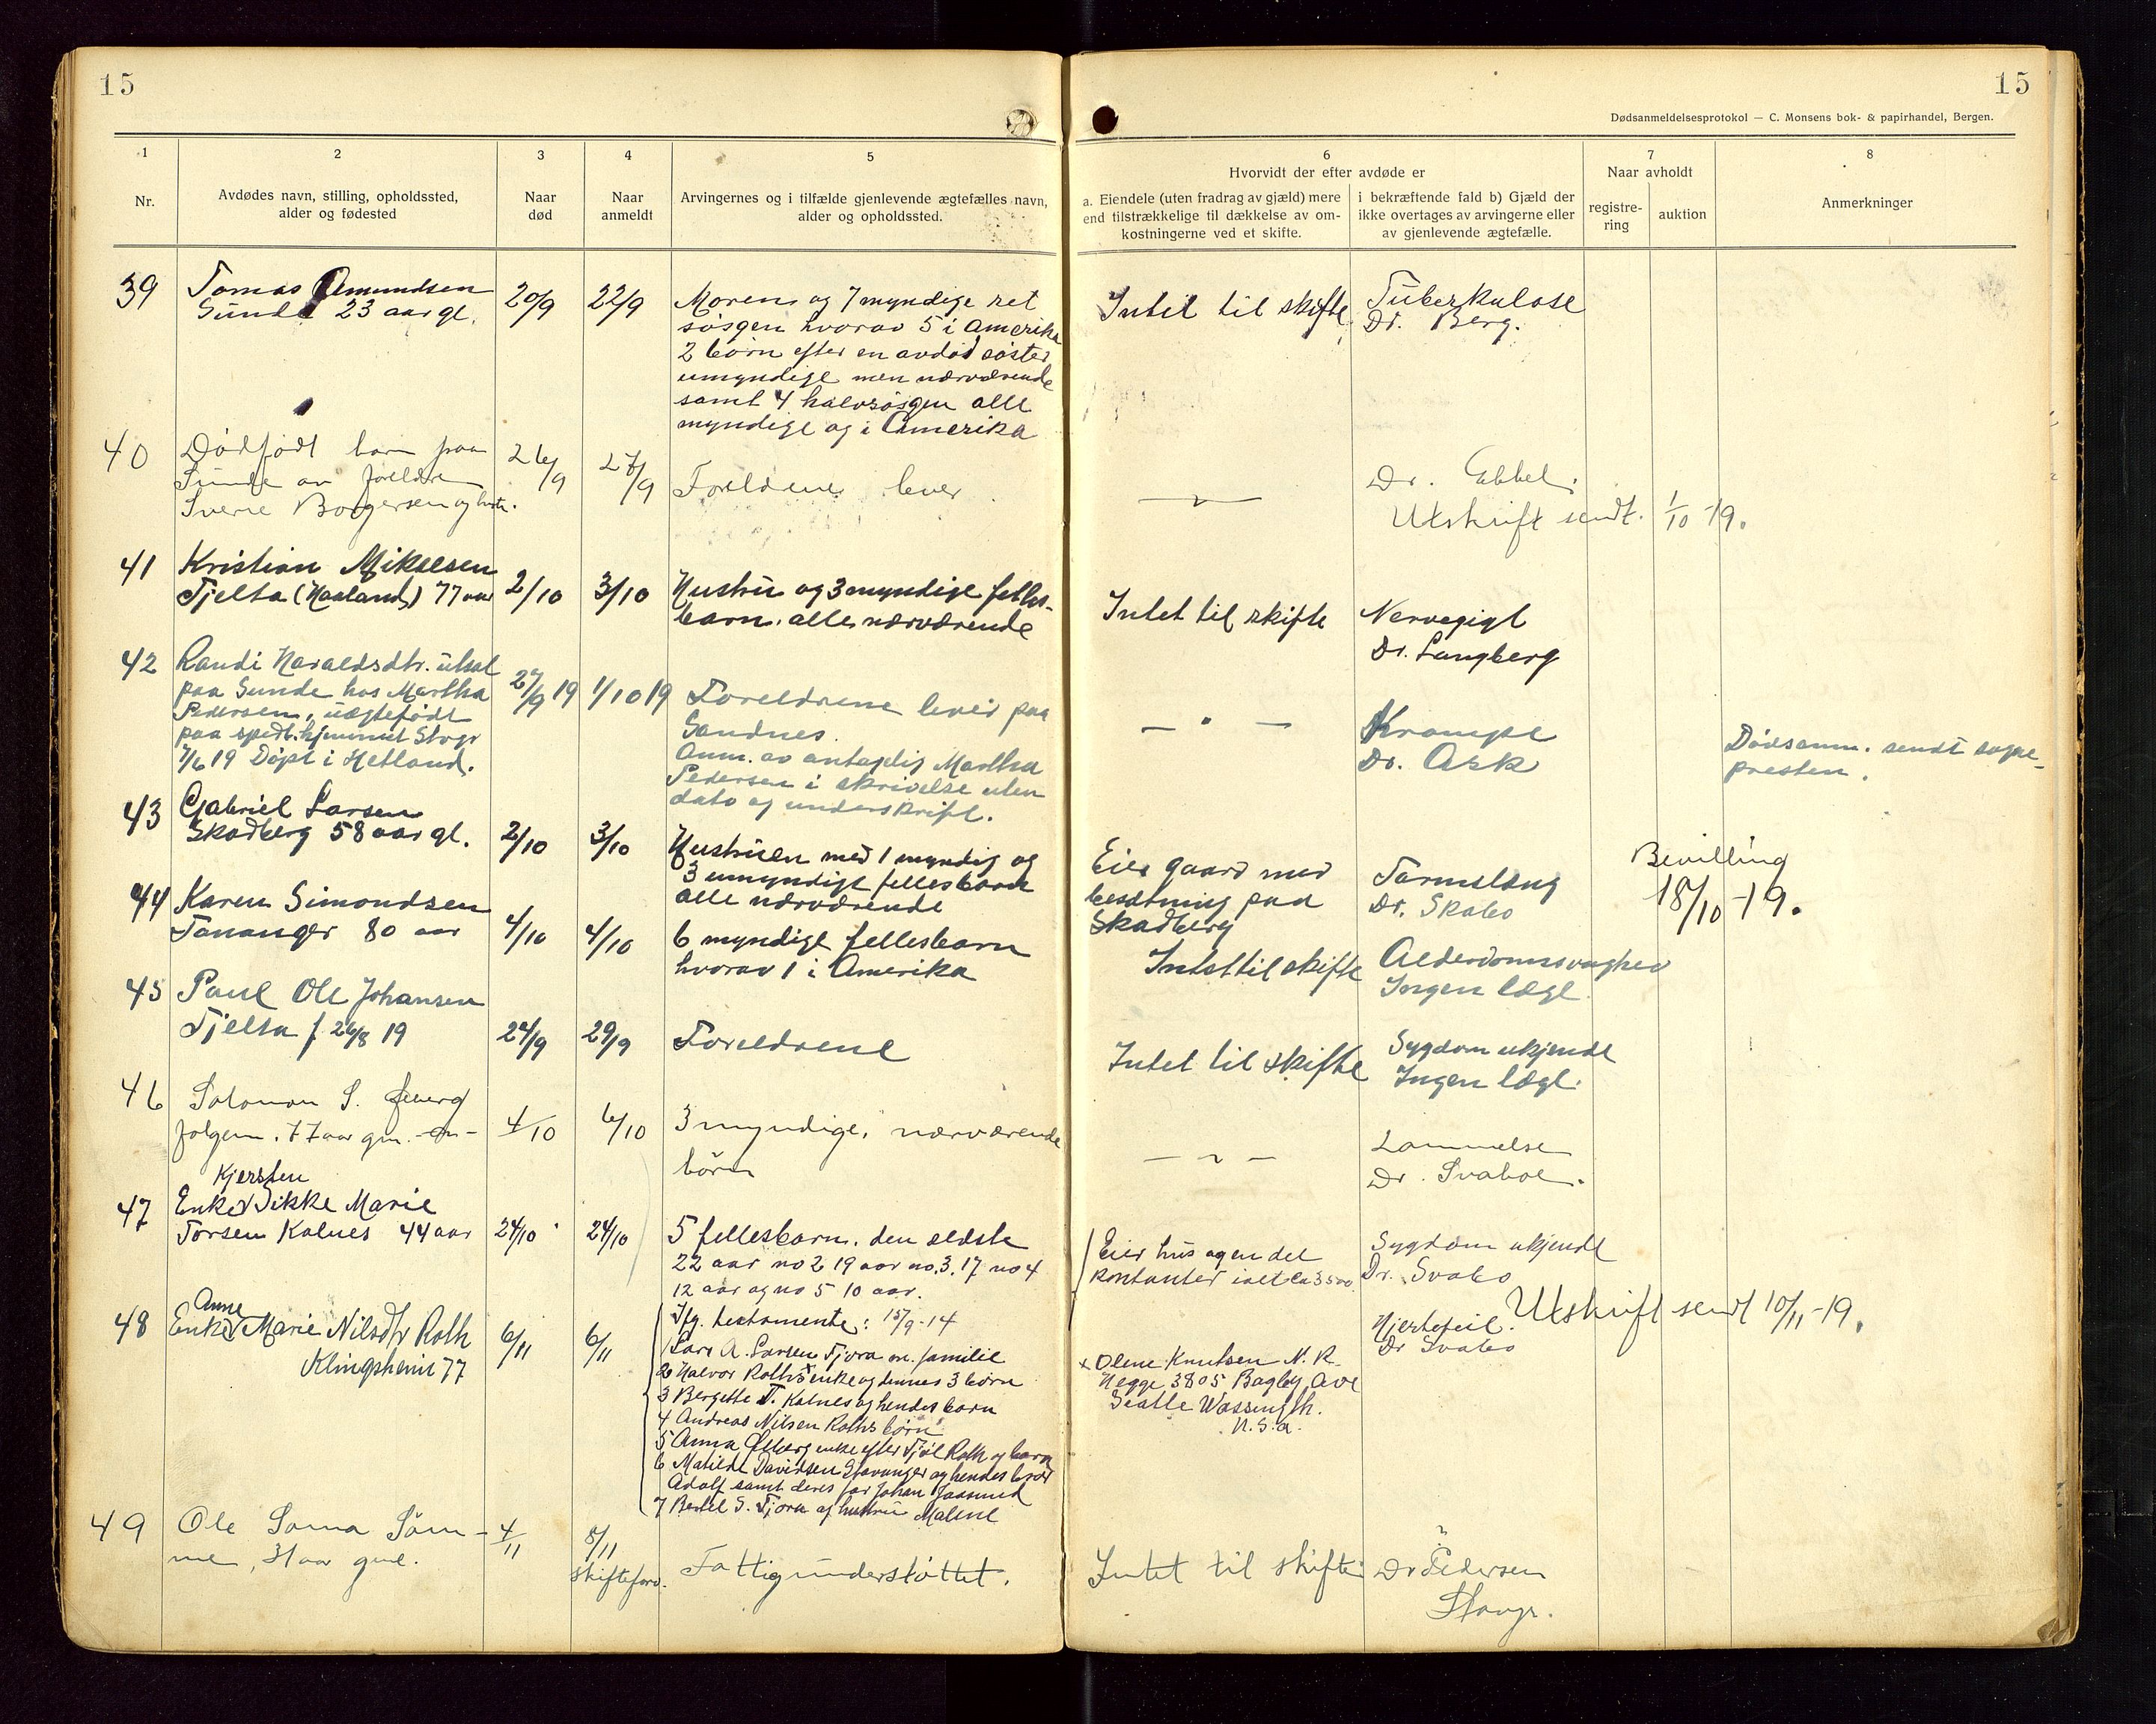 15
15
Dødsanmeldelsesprotokol — C. Monsens bok- & papirhandel, Bergen.
1
Nr.
2
Avdødes navn, stilling, opholdssted,
alder og fødested
3
Naar
død
4
Naar
anmeldt
5
Arvingernes og i tilfælde gjenlevende ægtefælles navn,
alder og opholdssted.
6
Hvorvidt der efter avdøde er
a. Eiendele (uten fradrag av gjæld) mere
end tilstrækkelige til dækkelse av om-
kostningerne ved et skifte.
i bekræftende fald b) Gjæld der
ikke overtages av arvingerne eller
av gjenlevende ægtefælle.
7
Naar avholdt
registre-
ring
auktion
8
Anmerkninger
39
Tomas Amundsen
Sunde 23 aar gl.
20/9
22/9
Moren og 7 myndige ret
søsgen hvorav 5 i Amerika
2 børn efter en avdød søster
umyndige men nærværende
samt 4 halvsøsgen alle
myndige og i Amerika
Intet til skifte
Tuberkulose
Dr. Berg.
40
Dødfødt barn paa
Sunde av foreldre
Sverre Borgersen og hustr.
26/9
27/9
Foreldrene lever.
— " —
Dr. Ebbel.
Utskrift sendt. 1/10 -19.
41
Kristian Mikalsen
Tjelta (Haaland) 77 aar
2/10
3/10
Hustru og 3 myndige felles-
barn. alle nærværende
Intet til skifte
Nervegigt
Dr. Langberg
42
Randi Haraldsdtr. utsat
paa Sunde hos Martha
Pedersen, uægtefødt
paa spedb.hjemmet Stvgr
7/6 19 Døpt i Hetland.
27/9 19
1/10 19
Foreldrene lever paa
Sandnes.
Anm. av antagelig Martha
Pedersen i skrivelse uten
dato og underskrift.
— " —
Krampe
Dr. Ask
Dødsanm. sendt sogne-
presten.
43
Gabriel Larsen
Skadberg 58 aar gl.
2/10
3/10
Hustruen med 1 myndig og
3 umyndige fellesbarn
alle nærværende
Eier gaard med
besætning paa
Skadberg
Tarmslyng
Dr. Skabo
Bevilling
18/10 -19.
44
Karen Simondsen
Tananger 80 aar
4/10
4/10
6 myndige fellesbarn
hvorav 1 i Amerika
Intet til skifte
Alderdomssvaghed
Ingen læge.
45
Paul Ole Johansen
Tjelta f. 26/8 19
24/9
29/9
Foreldrene
Intet til skifte
Sygdom ukjendt
Ingen læge.
46
Salomon S. Øeberg
folgem. 77 aar gm.
4/10
6/10
3 myndige, nærværende
børn
— " —
Lammelse
Dr. Svaboe.
47
Kjersten
Enke Sikke Marie
Torsen Kalnes 44 aar
24/10
24/10
5 fellesbarn. den eldste
22 aar no 2 19 aar no. 3. 17 no 4
12 aar og no 5 10 aar.
Eier hus og en del
kontanter ialt ca 3500
Sygdom ukjendt
Dr. Svabo
48
Anne
Enke Marie Nilsdtr Roth
Klingsheim 77
6/11
6/11
Ifg. testamente: 15/9-14
1 Lars A. Larsen Tjora m. familie
2 Halvor Roths enke og dennes 3 børn
3 Bergette T. Kalnes og hendes barn
4 Andreas Nilsen Roths børn
5 Anna Øeberg enke efter Tjøl Roth og barn
6 Matilde Davidsen Stavanger og hendes bror
Adolf samt deres far Johan Jaasund
7 Bertel S. Tjora og hustru Malene
x Olene Knutsen N. R.
Hegge 3805 Bagley Ave
Seatle Wassingth.
U.S.a.
Hjertefeil.
Dr Svabo
Utskrift sendt 10/11 -19.
49
Ole Soma Søm-
me, 31 aar gml.
4/11
8/11
skifteforv.
Fattigunderstøttet.
Intet til skifte
?
Dr Pedersen
Stavgr.